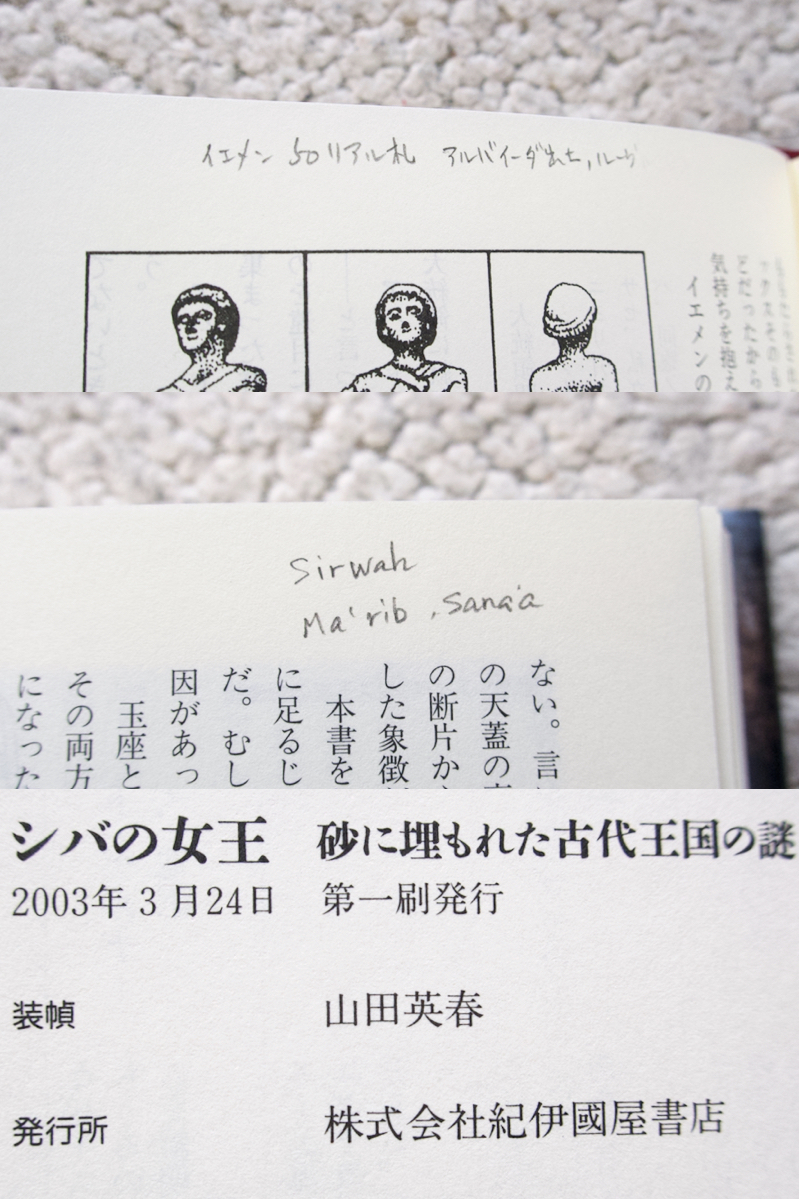 イエメン 50リアル札 アルバイーダ出土,ルーヴ
どだったから
気持ちを抱え
イエメンの
Sirwah
Ma'rib , Sana'a
ない。言い
の天蓋の
の断片か
した象徴
本書を
に足るじ
だ。むし
因があっ
玉座と
その両方
になった
シバの女王 砂に埋もれた古代王国の謎
2003年3月24日 第一刷発行
装幀 山田英春
発行所 株式会社紀伊國屋書店